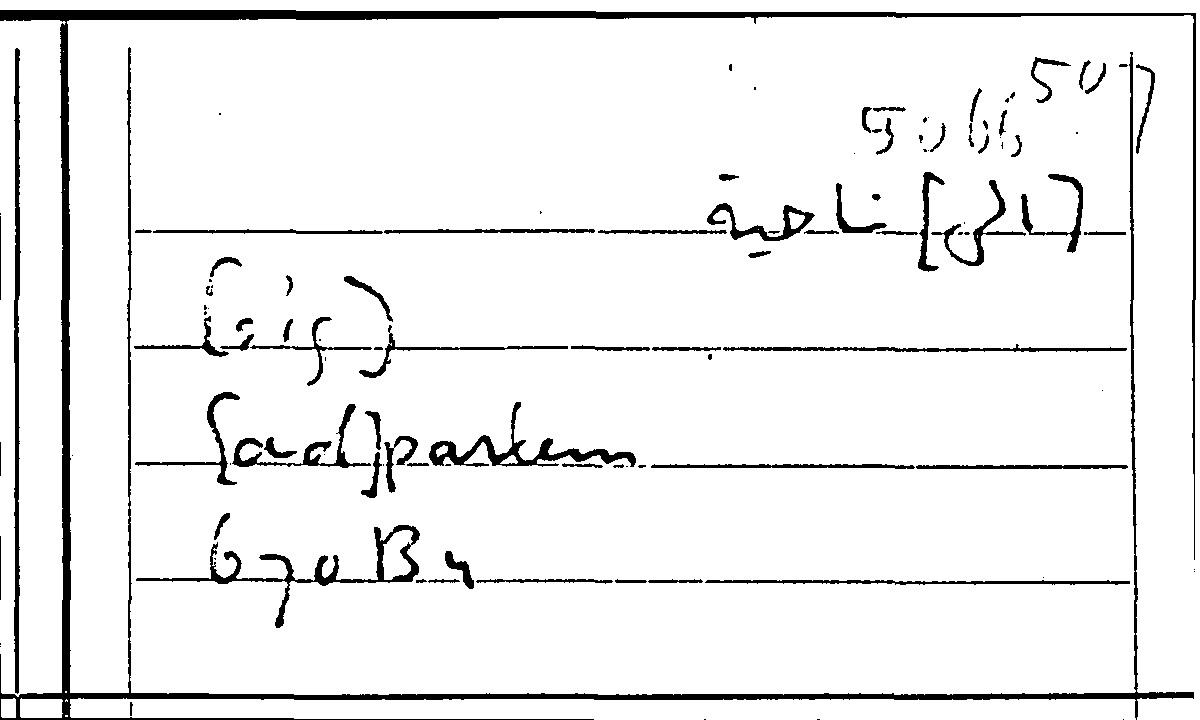 507
5066
[الى] ناحية
[ad] partem
670 B 4